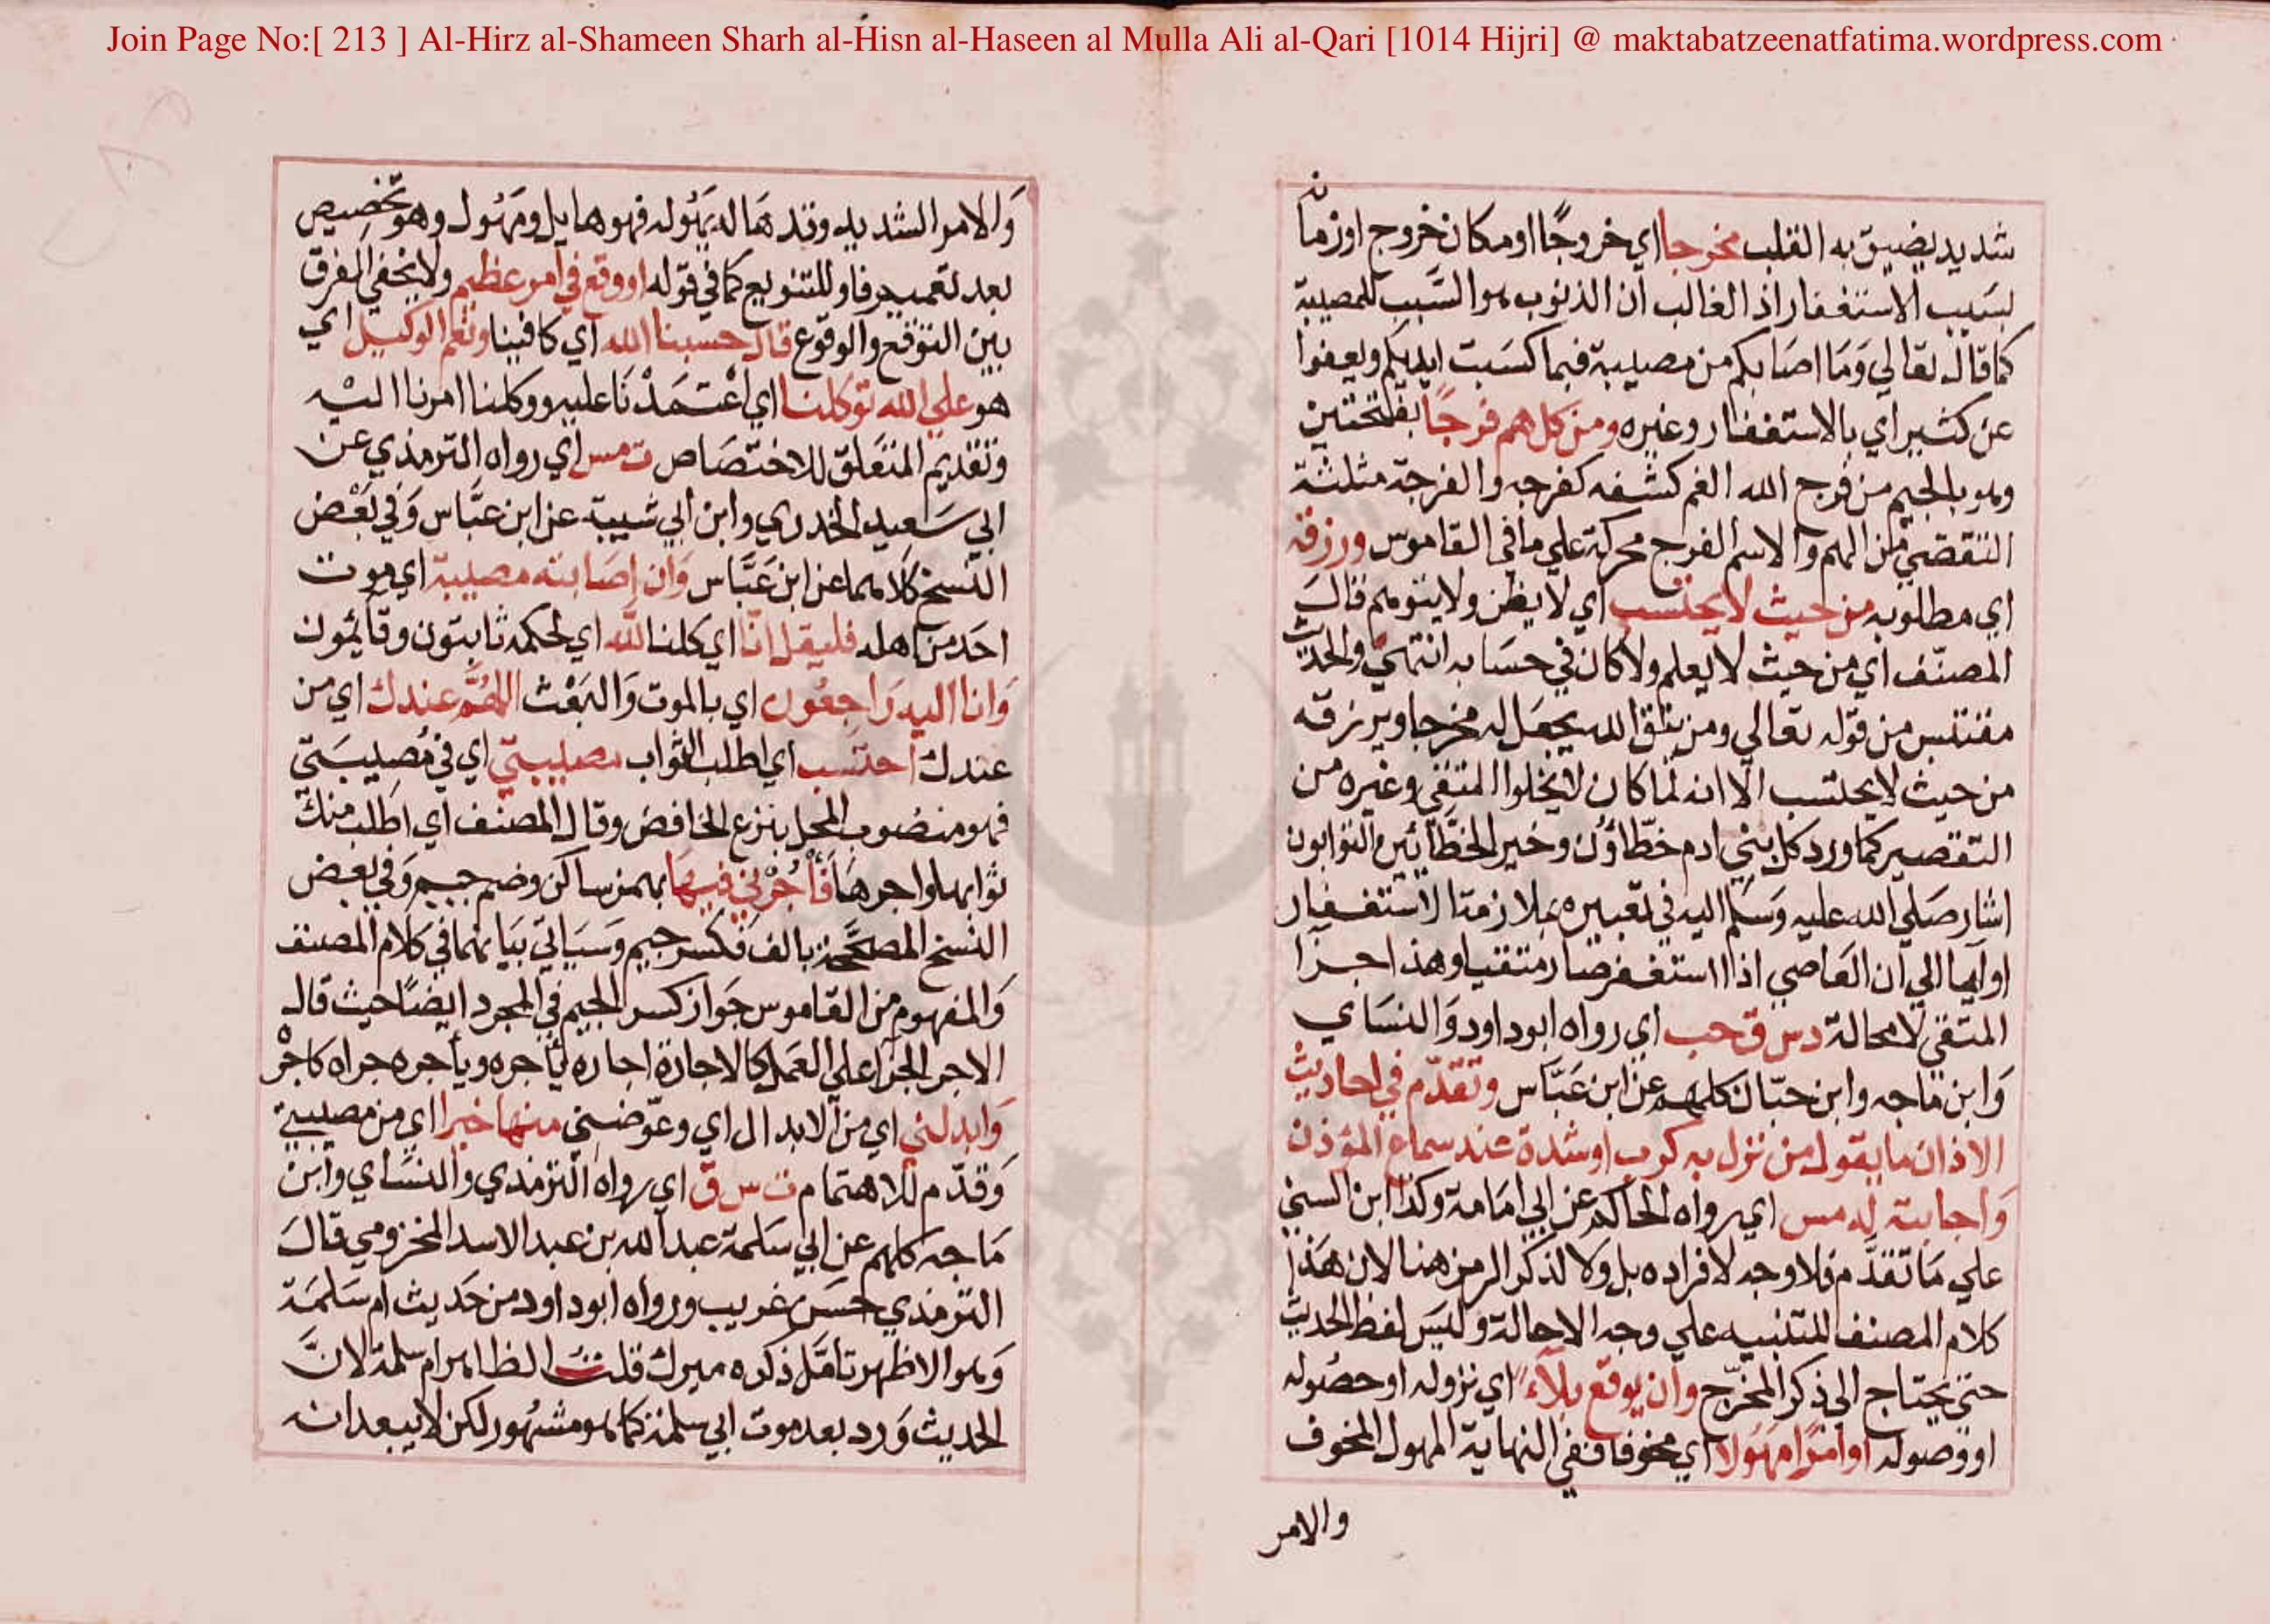 Join Page No:[ 213 ] Al-Hirz al-Shameen Sharh al-Hisn al-Haseen al Mulla Ali al-Qari [1014 Hijri] @ maktabatzeenatfatima.wordpress.com
شديد يضيق به القلب مخرجا اي خروجًا او مكان خروج او زمانه
بسبب الاستغفار اذ الغالب ان الذنوب هو السَّبب للمصيبة
كما قال تعالي وَمَا اصَابكم من مصيبة فبما كسَبت ايديكم ويعفوا
عن كثير اي بالاستغفار وغيره ومن كل هم فرجًا بفتحتين
وهو بالجيم من فرج الله الغم كشفه كفرجه والفرجة مثلثة
التقصي من الهم والاسم الفرج محركة علي ما في القاموس ورزقه
اي مطلوبه من حيث لا يحتسب اي لا يظن ولا يتوهم قالَ
المصنّف اي من حيث لا يعلم ولا كان في حسَابه انتهي والحديث
مقتبس من قوله تعالي ومن يتق الله يجعَل له مخرجا ويرزقه
من حيث لا يحتسب الا انه لما كان لا يخلوا المتقي وغيره من
التقصير كما ورد كل بني ادم خطّاؤن وخير الخطَّائين التوابون
اشار صَلي الله عليه وَسَلم اليه في تعبيره بملازمة الاستغفار
او ايما الي ان العَاصي اذا استغفر صَار متقيا وهذا جزا
المتقي لا محالة دس ق حب اي رواه ابو داود وَالنسَاي
وَابن ماجه وابن حبّان كلهم عن ابن عَبَّاس وتقدّم في احاديث
الاذان ما يقول من نزل به كرب او شدة عند سماع المؤذن
وَاجابته له مس اي رواه الحاكم عن ابي امَامة وكذا ابن السني
علي مَا تقدَّم فلا وجه لافراده بل وَلا لذكر الرمز هنا لان هَذا
كلام المصنف للتنبيه علي وجه الاحالة وليسَ لفظ الحديث
حتي يحتاج الي ذكر المخرّج وان يوقع بلآء اي نزوله او حصُوله
او وصوله او امرًا مهَولا اي مخوفا ففي النهاية المهول المخوف
والامر
وَالامر الشديد وقد هَاله يَهُوله فهو هايل ومَهُول وهو تخصيص
بعد تعميم فاو للتنويع كما في قوله او وقع في امر عظيم ولا يخفي الفرق
بين التوقع والوقوع قال حسبنا الله اي كافينا ونعم الوكيل اي
هو علي الله توكلنا اي اعْتمَدْنَا عليه ووكلنا امرنا اليْه
وتقديم المتعَلق للاختصَاص ت مس اي رواه الترمذي عن
ابي سَعيد الخدري وابن ابي شيبة عن ابن عبَّاس وَفي بَعْض
النسخ كلاهما عن ابن عَبَّاس وَان اصَابته مصيبة اي موت
احَد من اهله فليقل انّا اي كلنا للّه اي لحكمه ثابتون وقائمُون
وَانا اليه رَاجعُون اي بالموت وَالبَعْث اللهُمَّ عندك اي من
عندك احتَسب اي اطلب الثواب مصيبتي اي في مُصيبَتي
فهو منصُوب المحل بنزع الخافض وقال المصنف اي اطلب منك
ثوابها واجرهَا فَأْجُرْني فيهَا بهمز ساكن وضم جيم وَفي بعض
النسخ المصَححَة بالف فكسر جيم وَسيَاتي بيَانهما في كلام المصنف
وَالمفهوم من القاموس جَواز كسر الجيم في المجرد ايضًا حيث قال
الاجر الجزا علي العَمل كالاجازة اجاره يأجره ويأجره جزاه كاجرْ
وَابدلني اي من الابدال اي وعوّضني منها خيرا اي من مصيبتي
وَقدّم للاهتمام ت س ق اي رواه الترمذي والنسَاي وابن
مَاجه كلهم عن ابي سَلمة عبد الله بن عبد الاسد المخزومي قالَ
الترمذي حسَن غريب ورواه ابو داود من حَديث ام سَلمَة
وَهو الاظهر تامّل ذكره ميرك قلت الظاهر ام سلمة لانَّ
الحديث وَرد بعد موت ابي سلمة كما هو مشهُور لكن لا يبعد انه